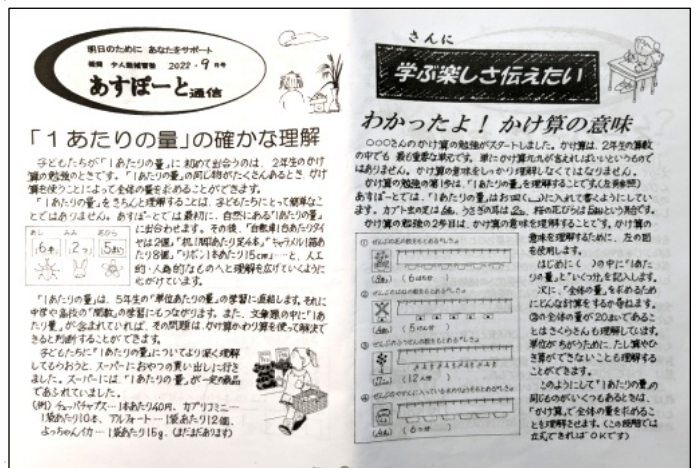 明日のために あなたをサポート
幾何 少人数補習塾 2022・9月号
あすぽーと通信
「1あたりの量」の確かな理解
子どもたちが「1あたりの量」に初めて出合うのは、2年生のかけ
算の勉強のときです。「1あたりの量」の同じ物がたくさんあるとき、かけ
算を使うことによって全体の量を求めることができます。
「1あたりの量」をきちんと理解することは、子どもたちにとって簡単なこ
とではありません。あすぽーとでは最初に、自然にある「1あたりの量」
に出合わせます。その後、「自動車1台あたりタイ
ヤは2個」「机1脚あたり足4本」「キャラメル1箱あ
たり8個」「リボン1本あたり15cm」…と、人工
的・人為的なものへと理解を広げていくように
心がけています。
あし みみ 花びら
6本 2つ 5まい
「1あたりの量」は、5年生の「単位あたりの量」の学習に直結します。それに
中学や高校の「関数」の学習にもつながります。また、文章題の中に「1あ
たり量」が含まれていれば、その問題は、かけ算かわり算を使って解決で
きると判断することができます。
子どもたちに「1あたりの量」についてより深く理解し
てもらおうと、スーパーにおやつの買い出しに行き
ました。スーパーには、「1あたりの量」が一定の商品
であふれていました。
(例) チュッパチャプス…1本あたり40円、カプリコミニ…
1袋あたり10本、アルフォート…1袋あたり12個、
よっちゃんイカ…1袋あたり15g、(まだまだあります)
さんに
学ぶ楽しさ伝えたい
わかったよ！かけ算の意味
○○○さんのかけ算の勉強がスタートしました。かけ算は、2年生の算数
の中でも最も重要な単元です。単にかけ算九九が言えればいいというもので
はありません。かけ算の意味をしっかり理解しなくてはなりません。
かけ算の勉強の第1歩は、「1あたりの量」を理解することです。(左頁参照)
あすぽーとでは、「1あたりの量」はお皿( )に入れて書くようにしてい
ます。カブト虫の足は6本、うさぎの耳は2つ、桜の花びらは5まいという具合です。
かけ算の勉強の2歩目は、かけ算の意味を理解することです。かけ算の
意味を理解するために、左の図
を使用します。
はじめに( )の中に「1あた
りの量」と「いくつ分」を記入します。
次に、「全体の量」を求めるため
にどんな計算をするか尋ねます。
②の全体の量が20まいであるこ
とはさくらさんも理解しています。
単位がちがうために、たし算やひ
き算ができないことも理解する
ことができます。
このようにして「1あたりの量」の
同じものがいくつもあるときは、
「かけ算」で全体の量を求めるこ
とを理解させます。(この段階では
立式できればOKです)
①
(6ぴき分)
②
(5けん分)
③
(12人分)
④
(6つ分)